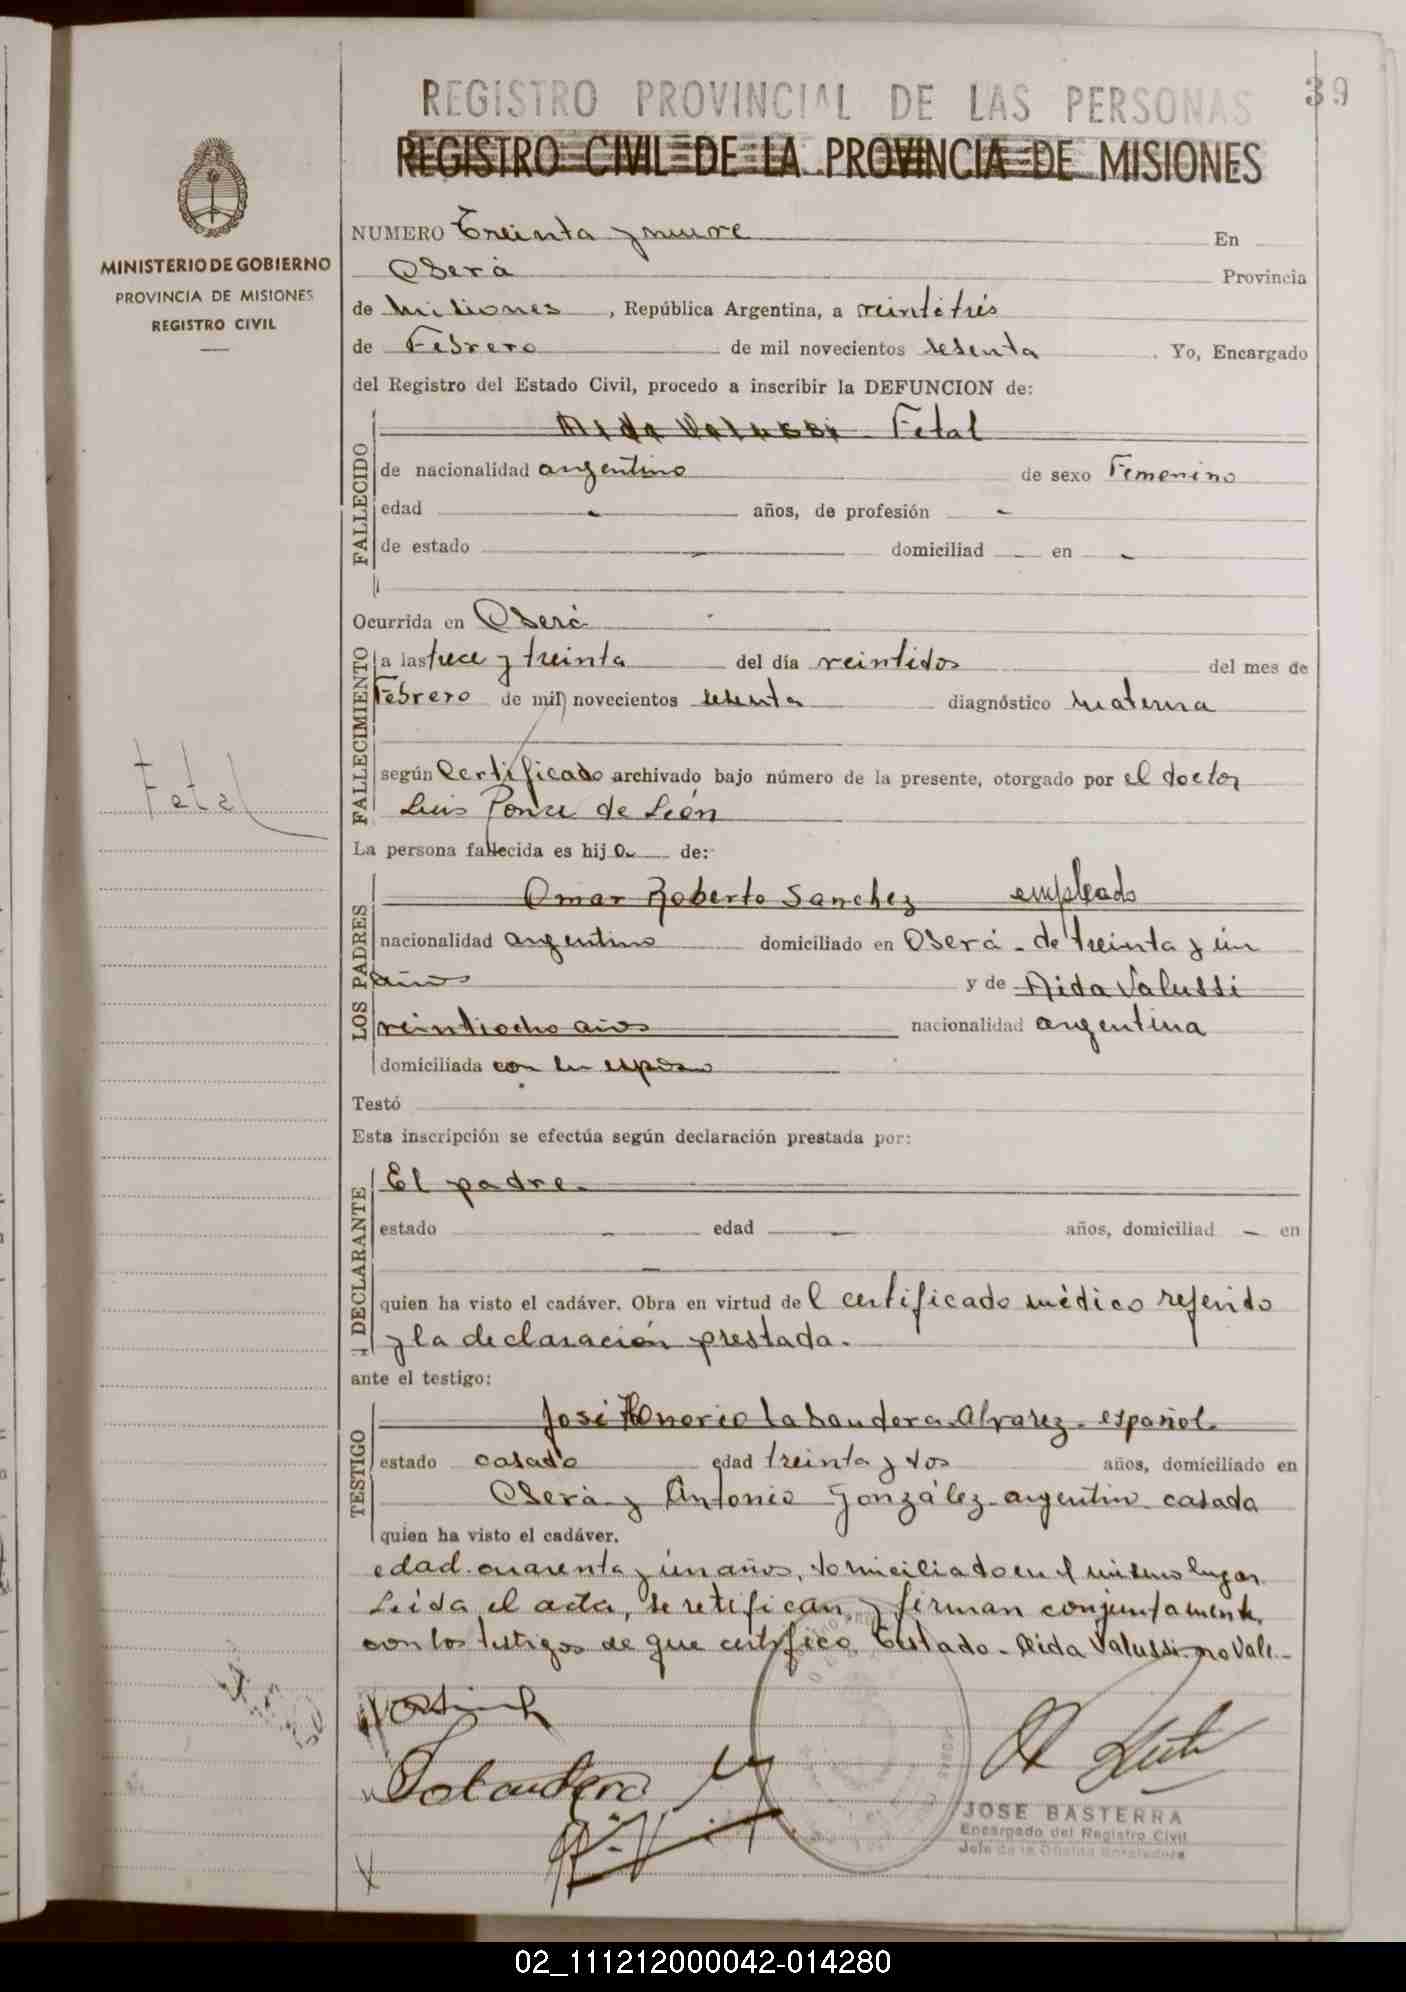 REGISTRO PROVINCIAL DE LAS PERSONAS
39
REGISTRO CIVIL DE LA PROVINCIA DE MISIONES
MINISTERIO DE GOBIERNO
PROVINCIA DE MISIONES
REGISTRO CIVIL
NUMERO Treinta y nueve En
Oberá Provincia
de Misiones , República Argentina, a veintitrés
de Febrero de mil novecientos sesenta . Yo, Encargado
del Registro del Estado Civil, procedo a inscribir la DEFUNCION de:
FALLECIDO
Aida Valussi - Fetal
de nacionalidad argentino de sexo Femenino
edad - años, de profesión -
de estado - domiciliad - en -
Ocurrida en Oberá
FALLECIMIENTO
a las trece y treinta del día veintidos del mes de
Febrero de mil novecientos sesenta diagnóstico materna
Fetal
según Certificado archivado bajo número de la presente, otorgado por el doctor
Luis Ponce de León
La persona fallecida es hij a de:
LOS PADRES
Omar Roberto Sanchez empleado
nacionalidad argentino domiciliado en Oberá - de treinta y ún
años y de Aida Valussi
veintiocho años nacionalidad argentina
domiciliada con su esposo
Testó
Esta inscripción se efectúa según declaración prestada por:
DECLARANTE
El padre.
estado - edad - años, domiciliad - en
-
quien ha visto el cadáver. Obra en virtud de l certificado médico referido
y la declaración prestada.
ante el testigo:
TESTIGO
José Honorio Labandera Alvarez - español.
estado casado edad treinta y dos años, domiciliado en
Oberá y Antonio González - argentino casado
quien ha visto el cadáver.
edad cuarenta y ún años, domiciliado en el mismo lugar.
Leída el acta, se retifican y firman conjuntamente
con los testigos de que certifico. Testado - Aida Valussi - no Vale.-
Labandera
JOSE BASTERRA
Encargado del Registro Civil
Jefe de la Oficina Enroladora
02_111212000042-014280